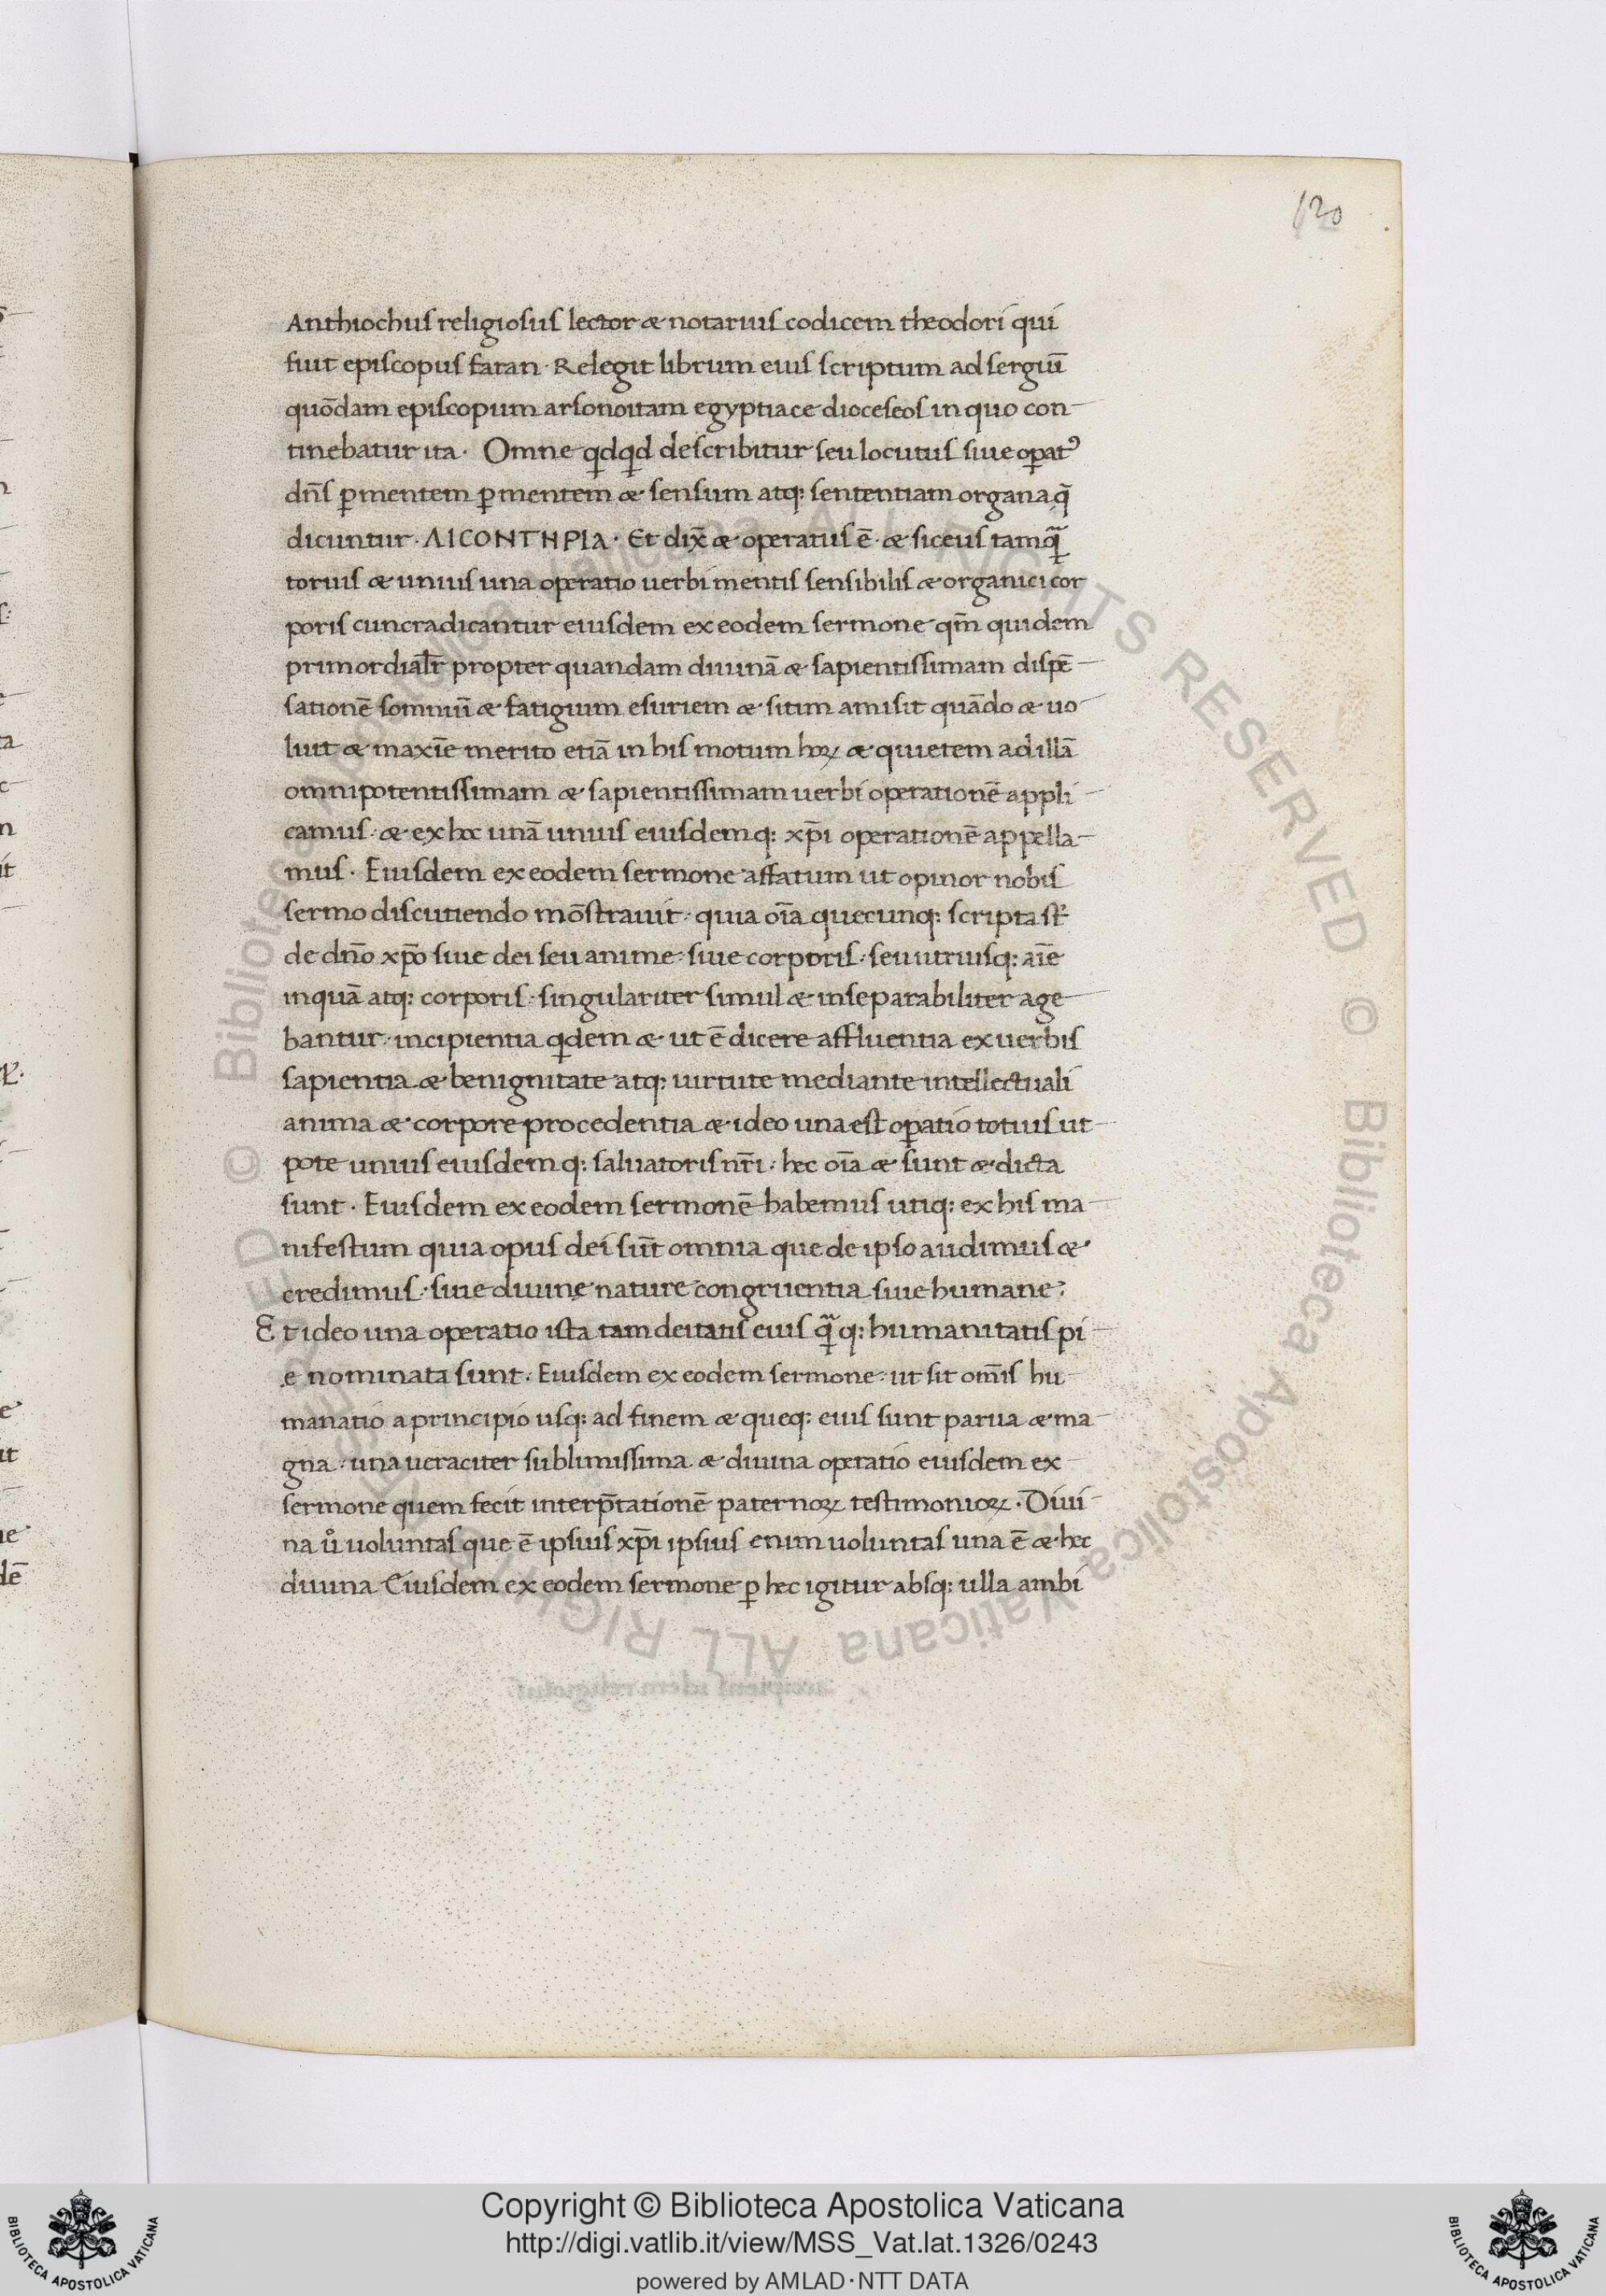 120
Anthiochus religiosus lector & notarius codicem theodori qui
fuit episcopus faran · Relegit librum eius scriptum ad sergiū
quōdam episcopum arsonoitam egyptiace dioceseos in quo con-
tinebatur ita · Omne qdqd describitur seu locutus siue opat᾽
dn̄s p mentem p mentem & sensum atq: sententiam organa q̄
dicuntur · ΛΙCΟΝΤΗΡΙΑ · Et dix̄ & operatus ē · & sic eius tamq̄
torius & unius una operatio uerbi mentis sensibilis & organici cor
poris cuncradicantur eiusdem ex eodem sermone qm̄ quidem
primordialr̄ propter quandam diuinā & sapientissimam dispē-
sationē somniū & fatigium esuriem & sitim amisit quādo & uo-
luit & maxīe merito etiā in his motum hoꝝ & quietem ad illā
omnipotentissimam & sapientissimam uerbi operationē appli-
camus · & ex hoc unā unius eiusdemq: xp̄i operationē appella-
mus · Eiusdem ex eodem sermone affatum ut opinor nobis
sermo discutiendo mōstrauit · quia oīa quecunq: scripta st̄
de dn̄o xp̄o siue dei seu anime · siue corporis · seu utriusq: aīe
inquā atq: corporis · singulariter simul & inseparabiliter age-
bantur · incipientia qdem & ut ē dicere affluentia ex uerbis
sapientia & benignitate atq: uirtute mediante intellectuali
anima & corpore procedentia & ideo una est opatio totius ut-
pote unius eiusdemq: saluatoris nr̄i · hec oīa & sunt & dicta
sunt · Eiusdem ex eodem sermonē habemus utiq: ex his ma-
nifestum quia opus dei sūt omnia que de ipso audimus &
credimus · siue diuine nature congruentia siue humane ?
Et ideo una operatio ista tam deitatis eius q̄q: humanitatis pi-
e nominata sunt · Eiusdem ex eodem sermone · ut sit om̄is hu-
manatio a principio usq: ad finem & queq: eius sunt parua & ma-
gna · una ueraciter sublimissima & diuina operatio eiusdem ex-
sermone quem fecit interp̄tationē paternoꝝ testimonioꝝ · Diui-
na u̇̊ uoluntas que ē ipsius xp̄i ipsius enim uoluntas una ē & hec
diuina Eiusdem ex eodem sermone p hec igitur absq: ulla ambi
Copyright © Biblioteca Apostolica Vaticana
http://digi.vatlib.it/view/MSS_Vat.lat.1326/0243
powered by AMLAD·NTT DATA